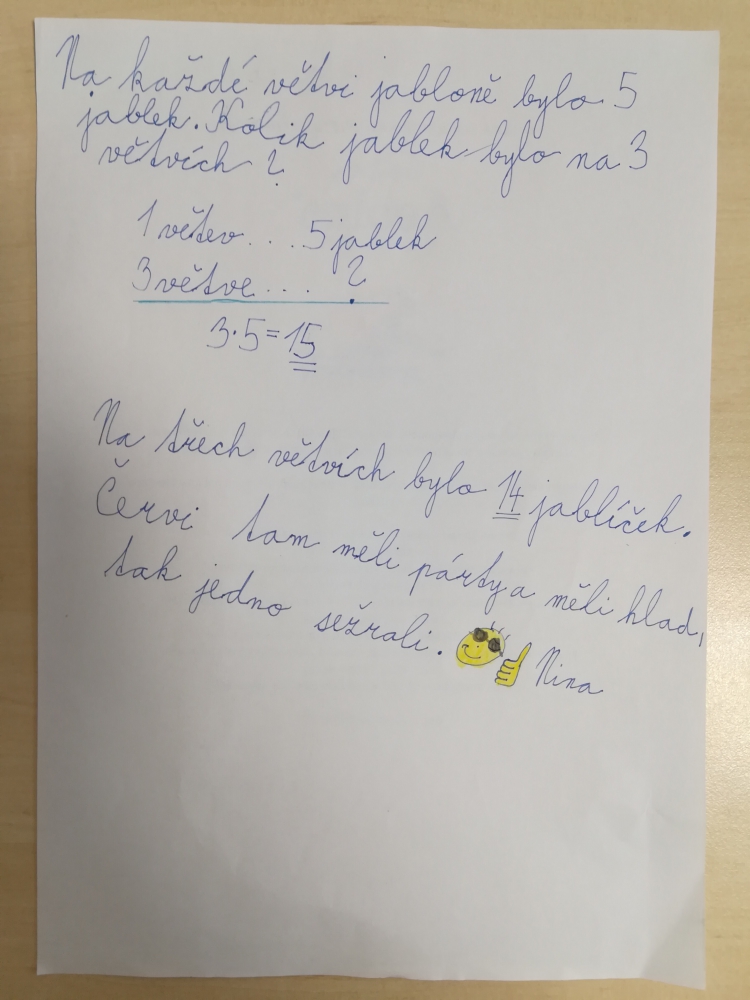 Na každé větvi jabloně bylo 5
jablek. Kolik jablek bylo na 3
větvích?
1 větev . . . . 5 jablek
3 větve . . . . ?
3·5=15
Na třech větvích bylo 14 jablíček.
Červi tam měli párty a měli hlad,
tak jedno sežrali. Nina